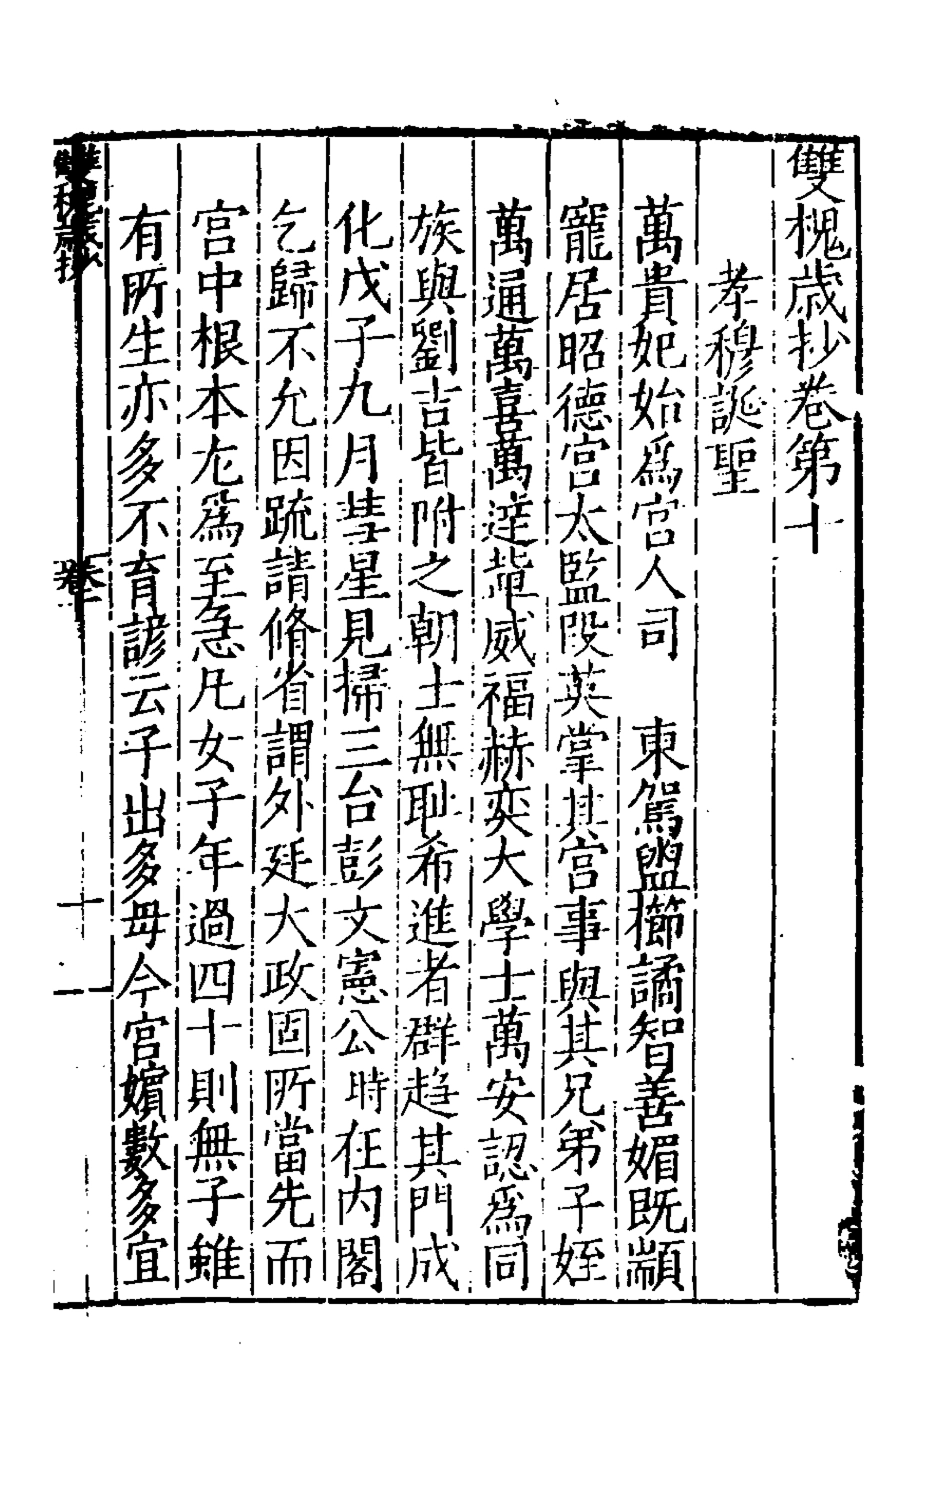 雙槐歲抄卷第十
孝穆誕聖
萬貴妃始爲宮人司　東駕盥櫛譎智善媚既顓
寵居昭德宮太監段英掌其宮事與其兄弟子姪
萬通萬喜萬達輩威福赫奕大學士萬安認爲同
族與劉吉皆附之朝士無耻希進者群趋其門成
化戊子九月彗星見掃三台彭文憲公時在内閣
乞歸不允因疏請脩省謂外廷大政固所當先而
宮中根本尤爲至急凡女子年過四十則無子雖
有所生亦多不育諺云子出多母今宮嬪數多宜
雙槐歲抄
卷十
十一